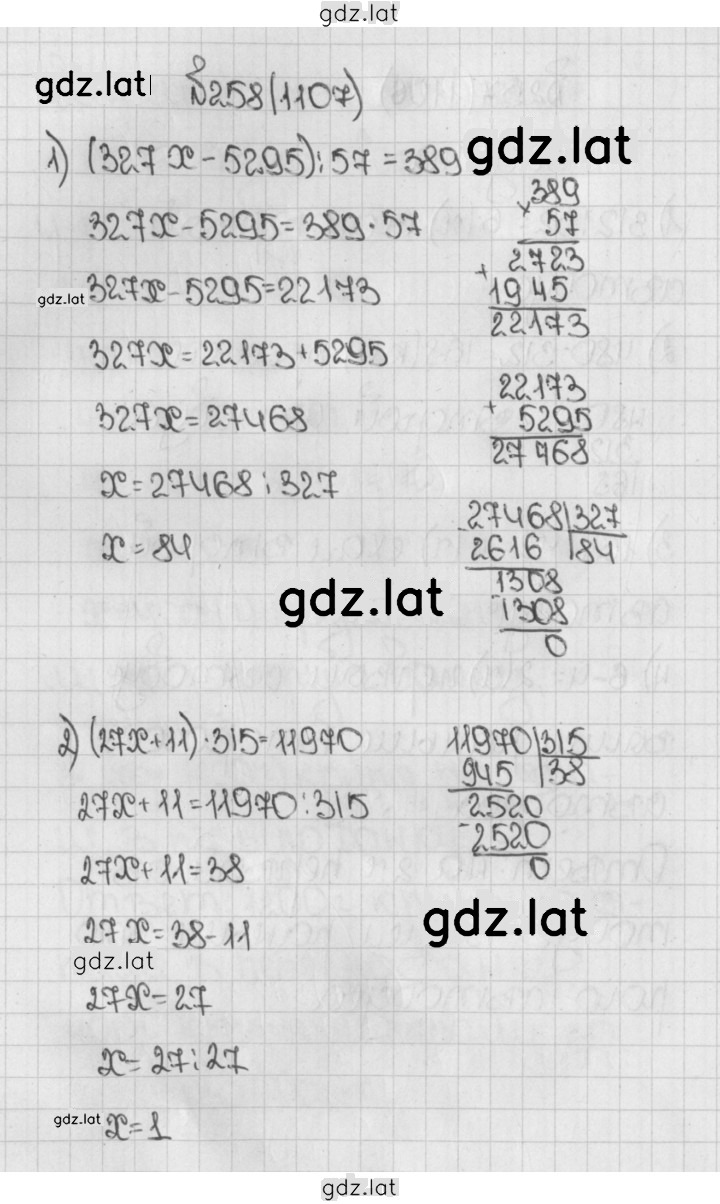 gdz.lat
gdz.lat
№258(1107)
1) (327x-5295):57=389
gdz.lat
327x-5295=389·57
gdz.lat
327x-5295=22173
327x=22173+5295
327x=27468
x=27468:327
x=84
×389
57
2723
+
1945
22173
22173
+
5295
27468
-27468|327
2616 |84
1308
-
1308
0
gdz.lat
2) (27x+11)·315=11970
27x+11=11970:315
27x+11=38
27x=38-11
gdz.lat
27x=27
x=27:27
gdz.lat
x=1
11970|315
945 |38
2520
-2520
0
gdz.lat
gdz.lat